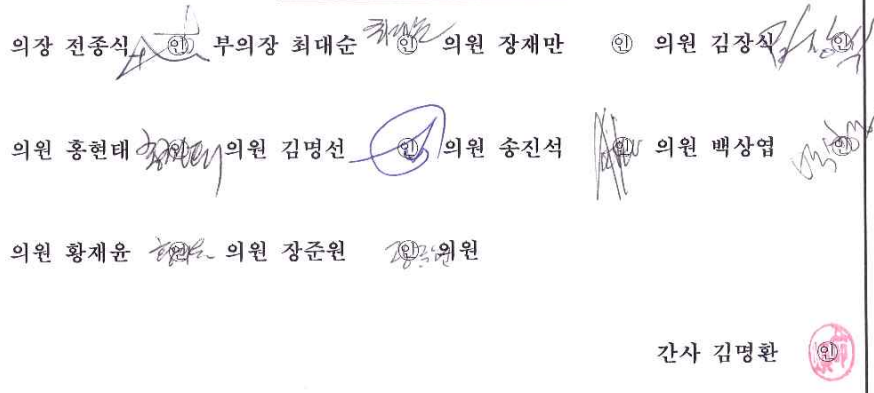 의장 전종식 ㊞ 부의장 최대순 최대순 ㊞ 의원 장재만 ㊞ 의원 김장식 김장식 ㊞
의원 홍현태 홍현태 ㊞ 의원 김명선 ㊞ 의원 송진석 ㊞ 의원 백상엽 ㊞
의원 황재윤 ㊞ 의원 장준원 장준원 ㊞ 의원
간사 김명환 ㊞